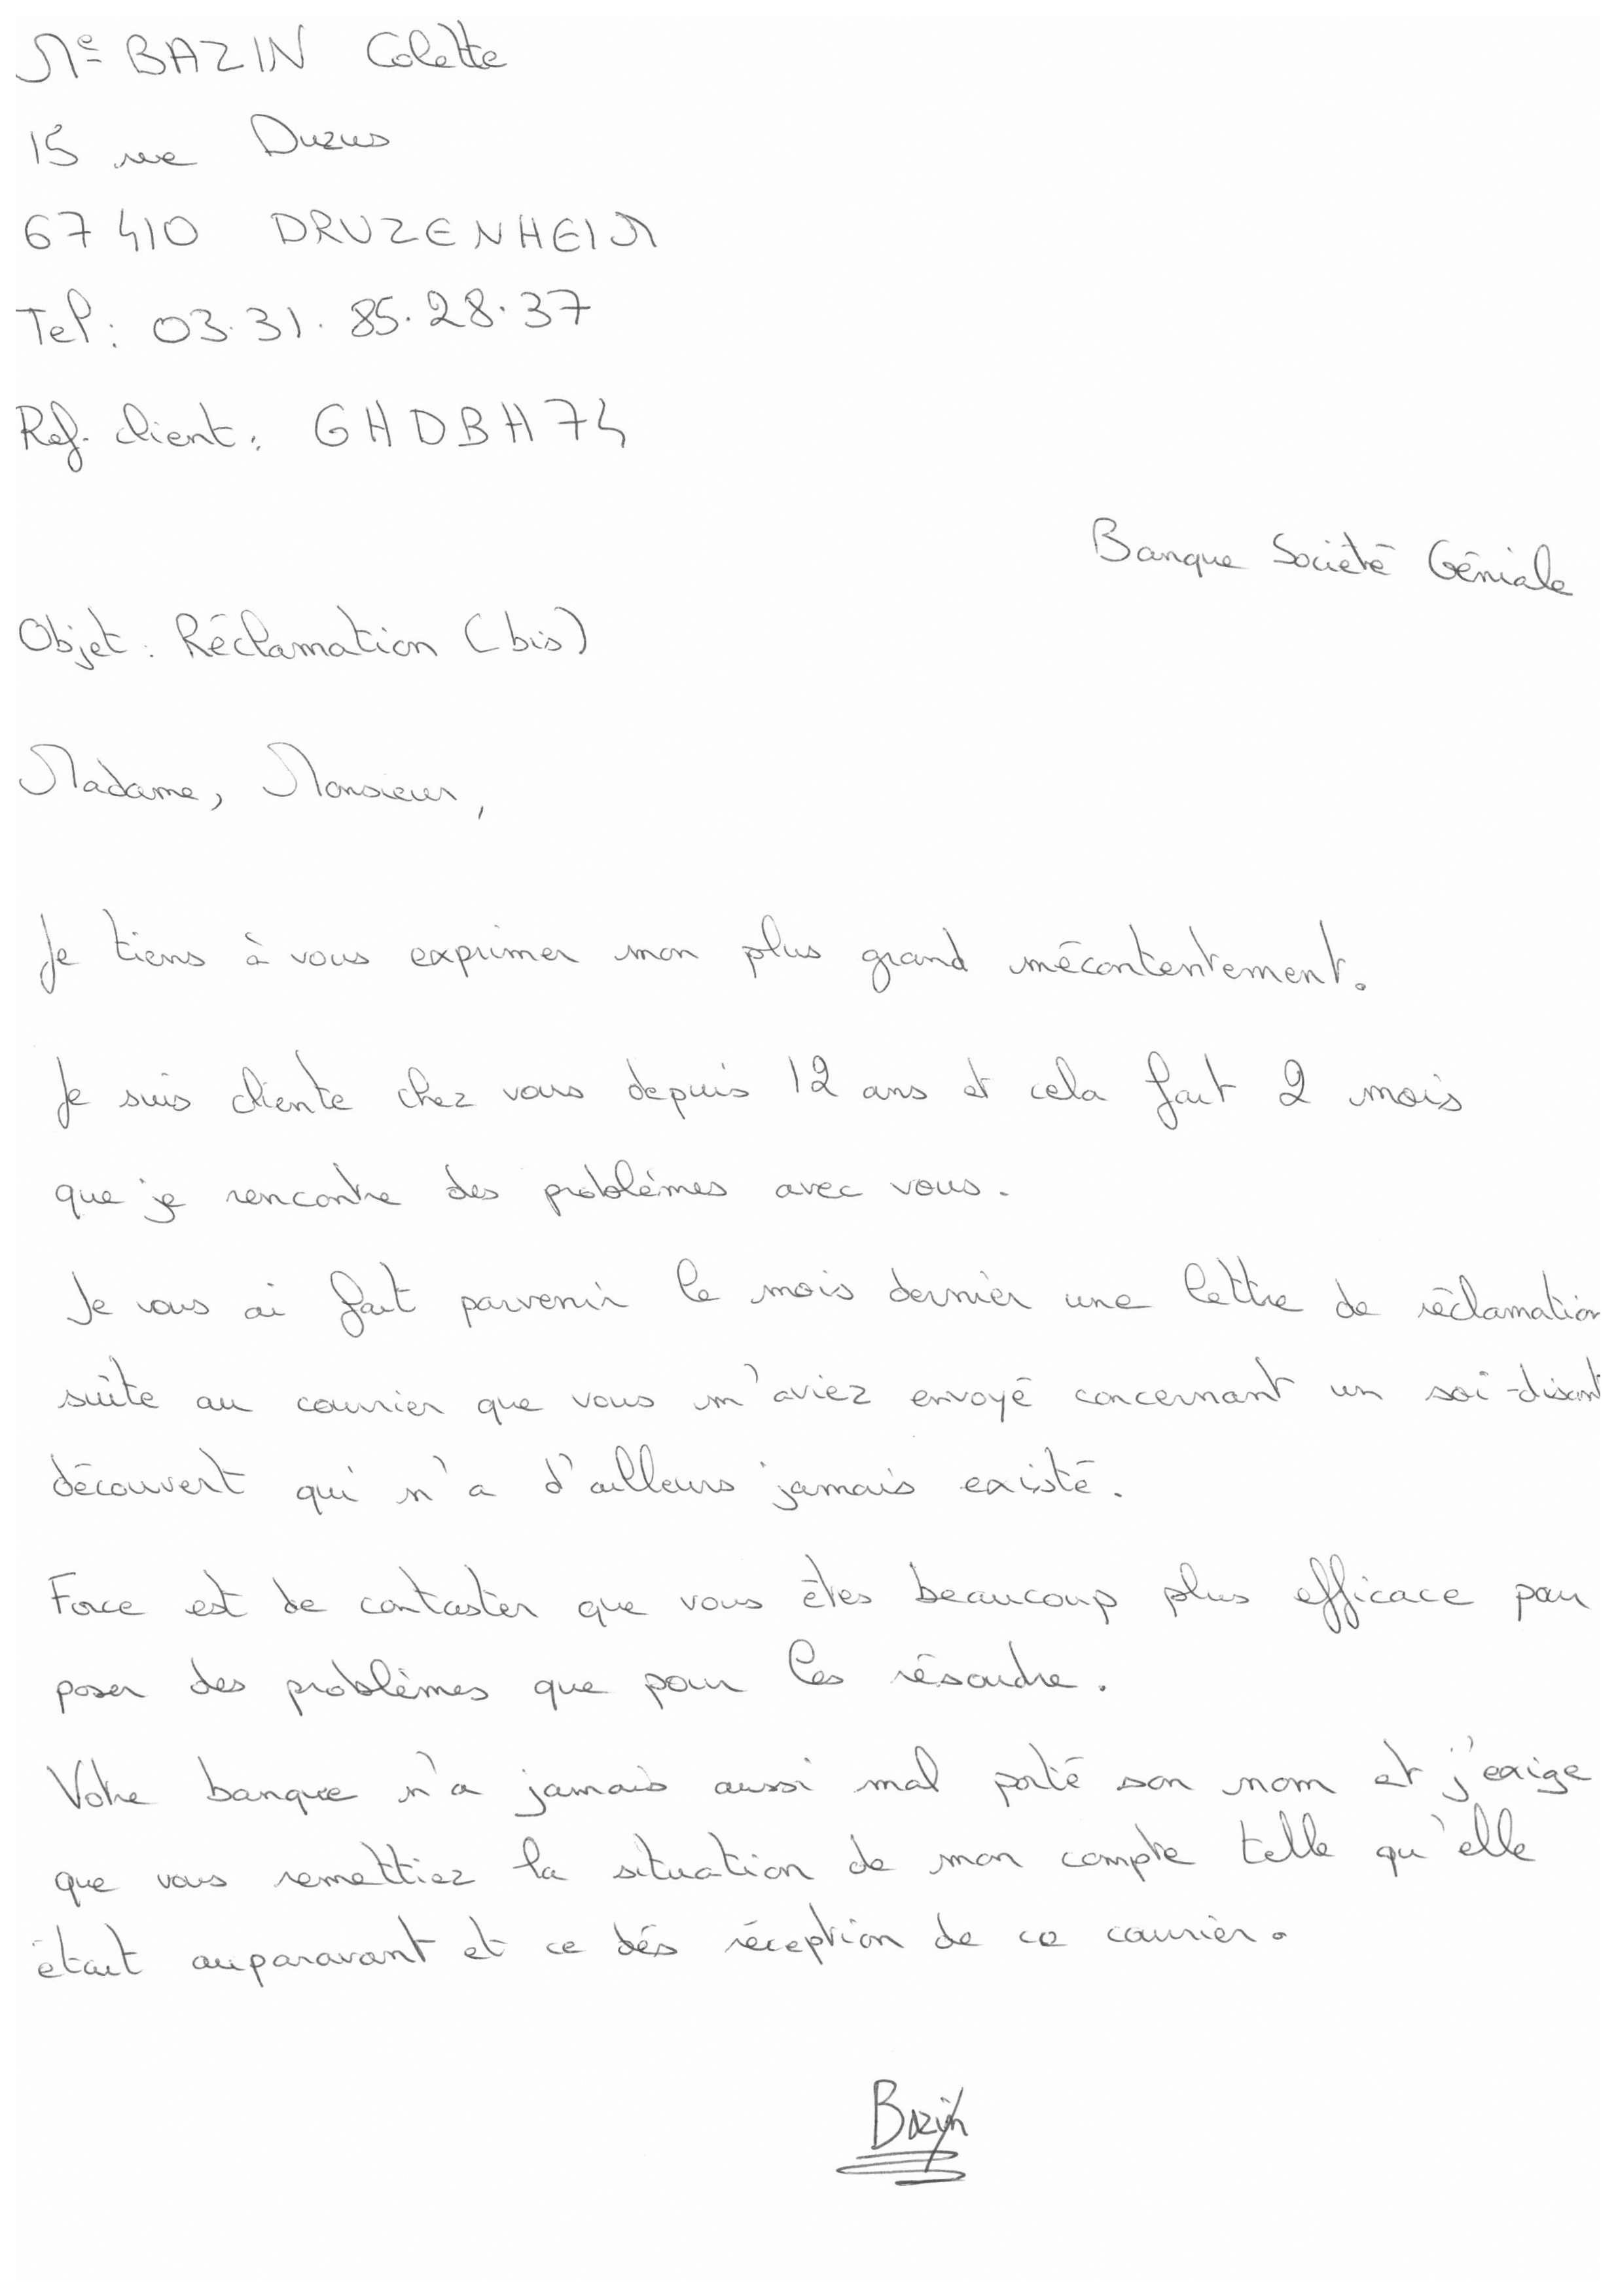 Me BAZIN Colette
15 rue Duzus
67 410 DRUZENHEIM
Tel : 03.31.85.28.37
Ref. client : GHDBH74
Banque Société Géniale
Objet : Réclamation (bis)
Madame, Monsieur,
Je tiens à vous exprimer mon plus grand mécontentement.
Je suis cliente chez vous depuis 12 ans et cela fait 2 mois
que je rencontre des problèmes avec vous.
Je vous ai fait parvenir le mois dernier une lettre de réclamation
suite au courrier que vous m'aviez envoyé concernant un soi-disant
découvert qui n'a d'ailleurs jamais existé.
Force est de contaster que vous êtes beaucoup plus efficace pour
poser des problèmes que pour les résoudre.
Votre banque n'a jamais aussi mal porté son nom et j'exige
que vous remettiez la situation de mon compte telle qu'elle
était auparavant et ce dés réception de ce courrier.
Bazin